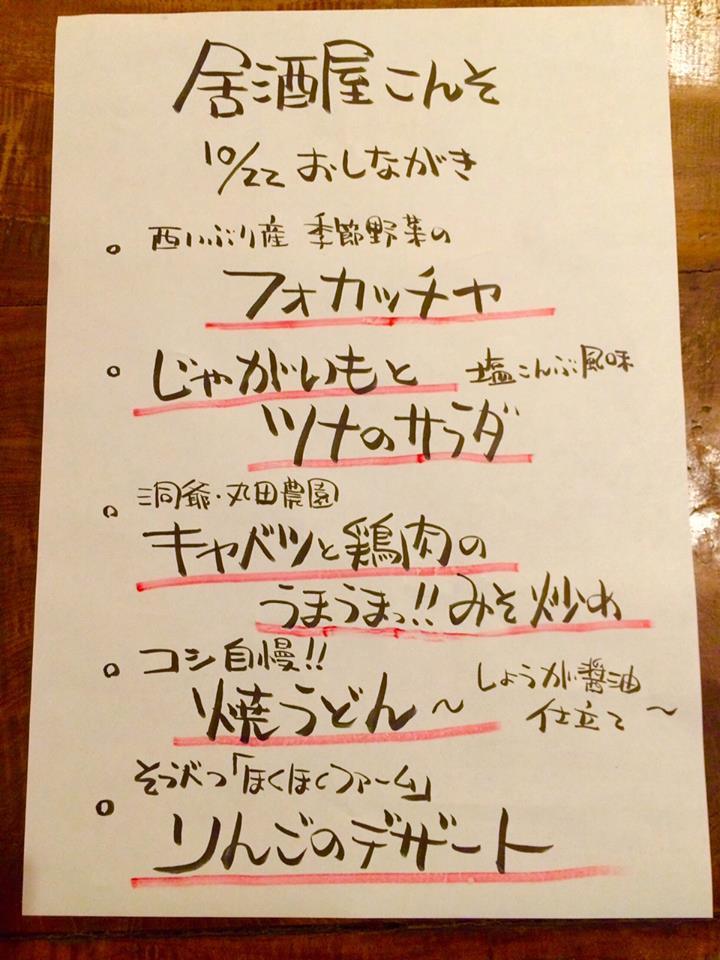 居酒屋こんそ
10/22 おしながき
西いぶり産 季節野菜の
フォカッチャ
じゃがいもと 塩こんぶ風味
ツナのサラダ
洞爺・丸田農園
キャベツと鶏肉の
うまうまっ!!みそ炒め
コシ自慢!!
焼うどん～しょうが醤油
仕立て～
そうべつ「ほくほくファーム」
りんごのデザート